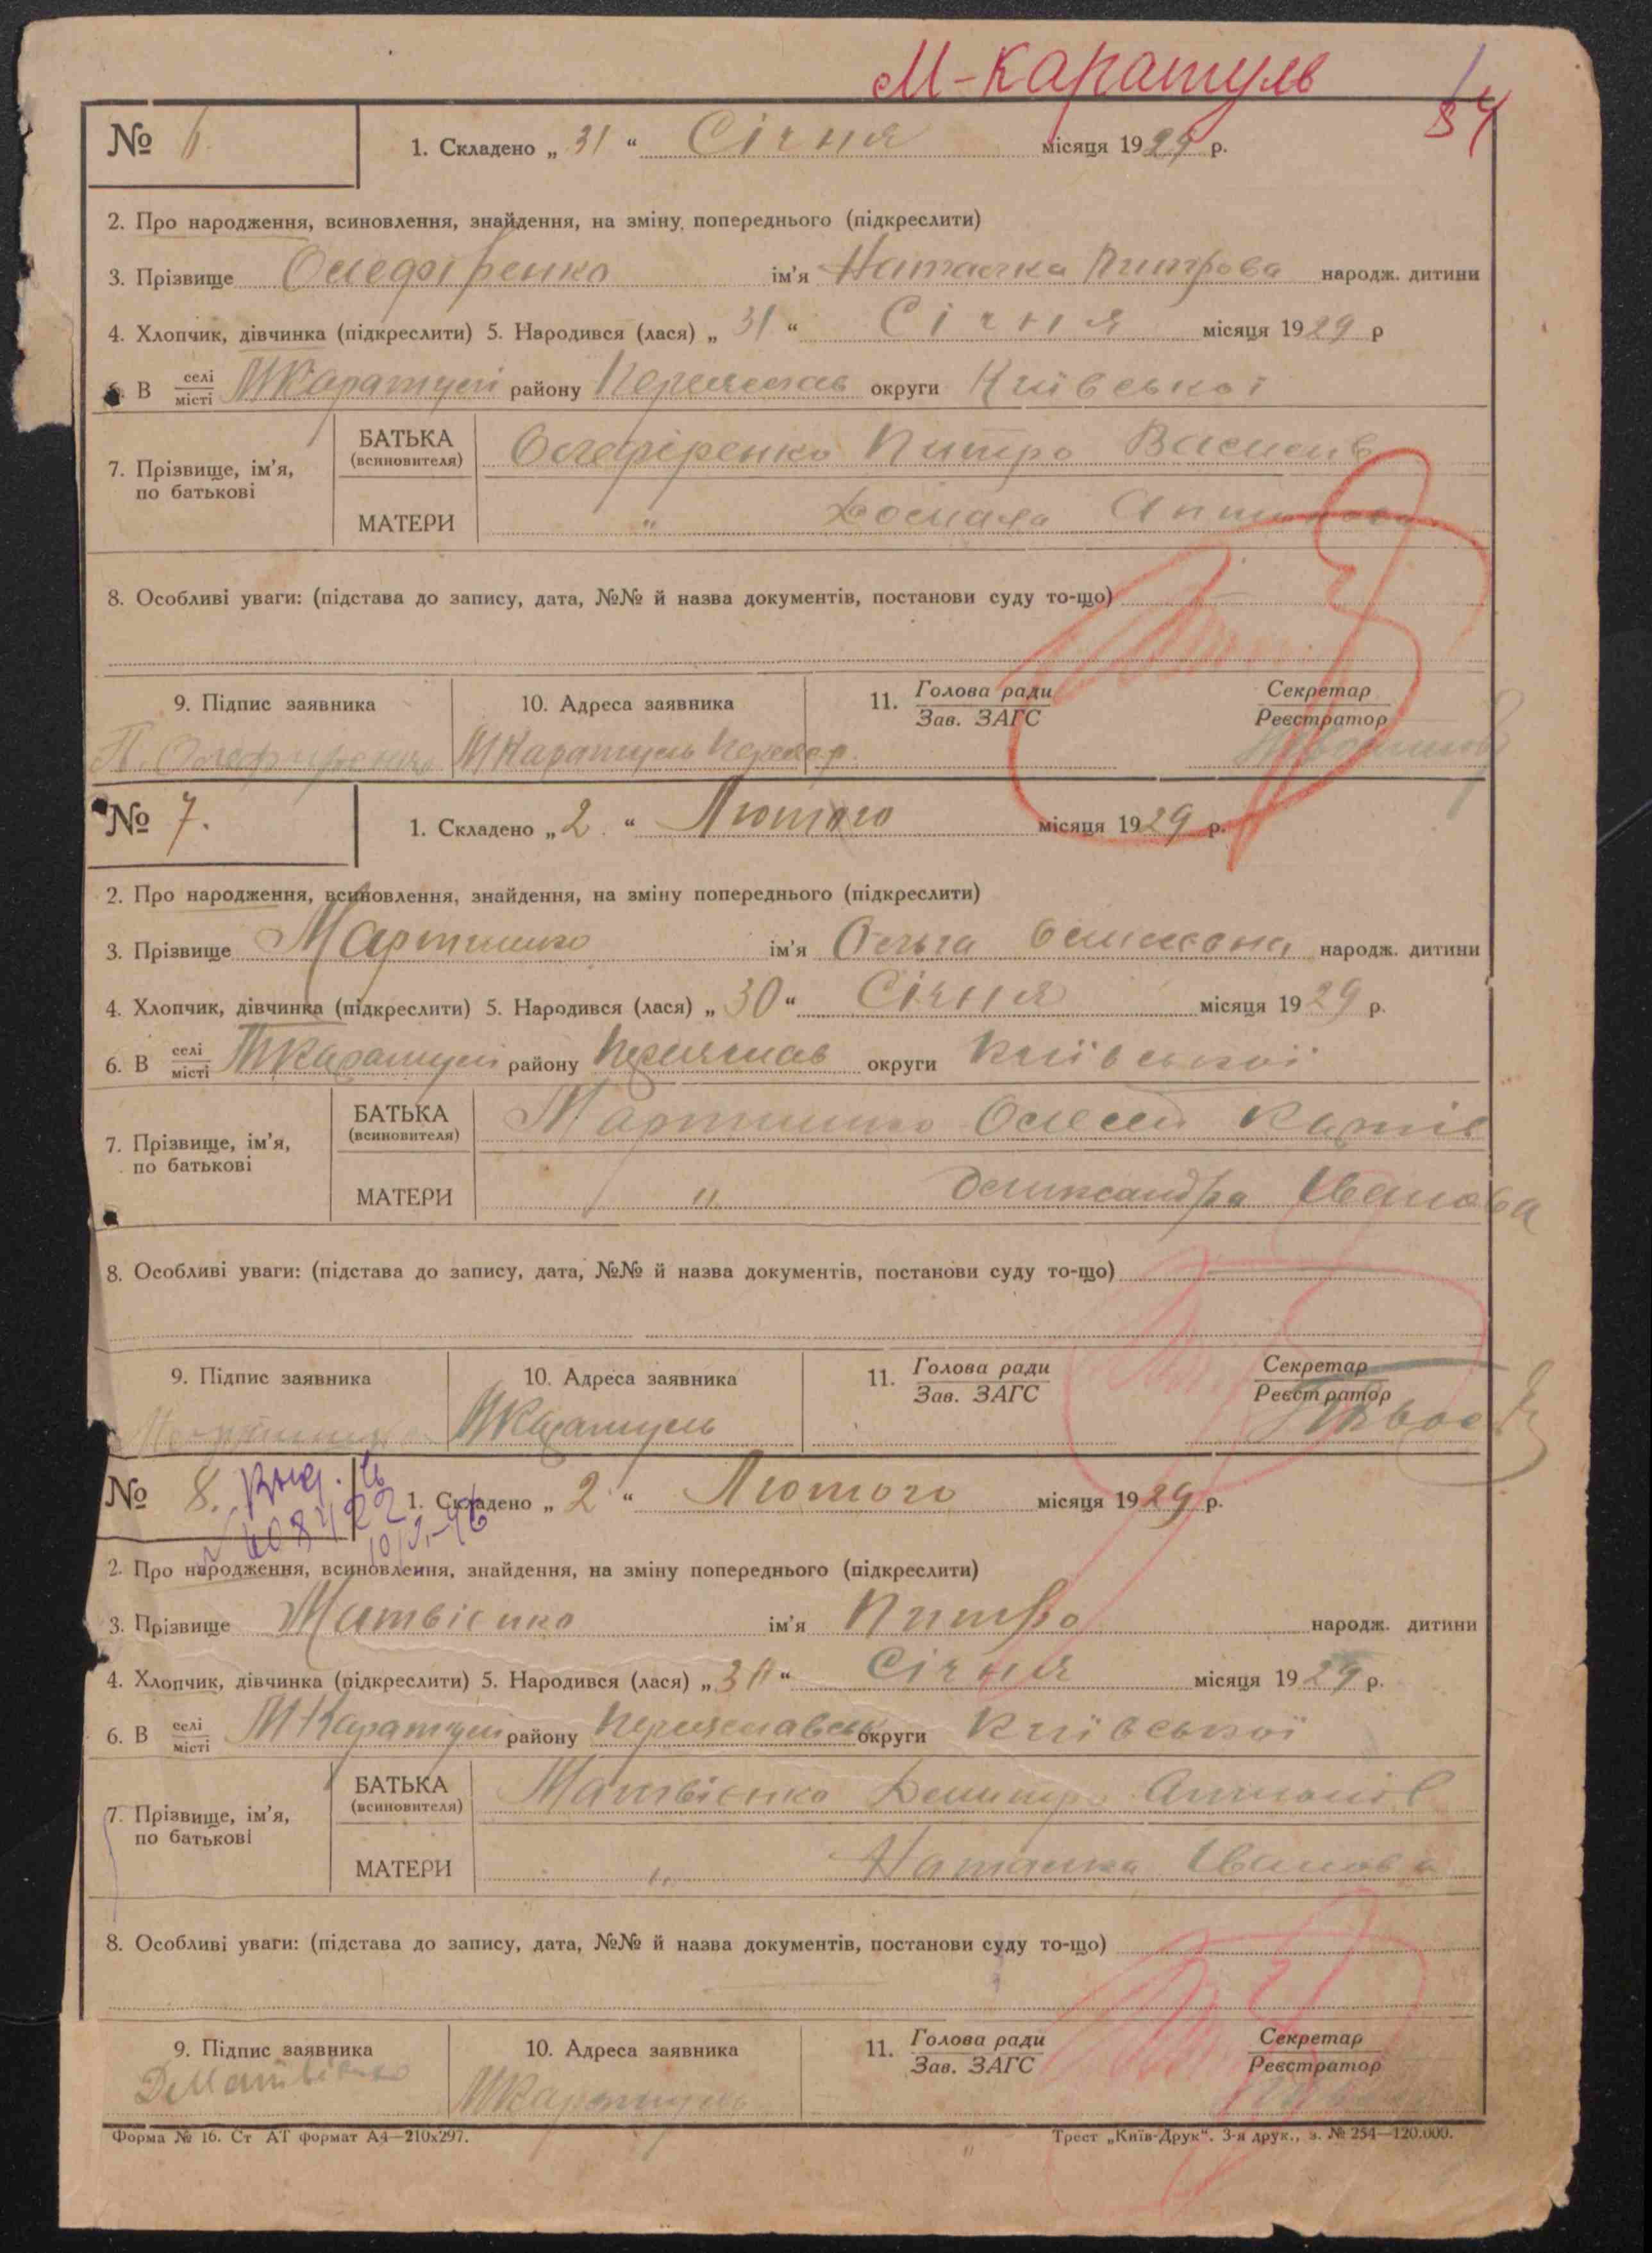 М-Каратуль
54
№ 6. 1. Складено „31“ Січня місяця 1929 р.
2. Про народження, всиновлення, знайдення, на зміну попереднього (підкреслити)
3. Прізвище Олефіренко ім'я Наталка Питрова народж. дитини
4. Хлопчик, дівчинка (підкреслити) 5. Народився (лася) „31“ Січня місяця 1929 р
6. В селі/місті МКаратулі району Переяслав округи Київської
7. Прізвище, ім'я, по батькові
БАТЬКА (всиновителя) Олефіренко Питро Василів
МАТЕРИ "
8. Особливі уваги: (підстава до запису, дата, №№ й назва документів, постанови суду то-що)
9. Підпис заявника 10. Адреса заявника 11. Голова ради/Зав. ЗАГС Секретар/Реєстратор
П. Олефиренко МКаратуль
№ 7. 1. Складено „2.“ Лютого місяця 1929 р.
2. Про народження, всиновлення, знайдення, на зміну попереднього (підкреслити)
3. Прізвище ім'я Ольга народж. дитини
4. Хлопчик, дівчинка (підкреслити) 5. Народився (лася) „30“ Січня місяця 1929 р.
6. В селі/місті МКаратулі району Переяслав округи Київської
7. Прізвище, ім'я, по батькові
БАТЬКА (всиновителя) Олексій
МАТЕРИ " Олександра Іванова
8. Особливі уваги: (підстава до запису, дата, №№ й назва документів, постанови суду то-що)
9. Підпис заявника 10. Адреса заявника 11. Голова ради/Зав. ЗАГС Секретар/Реєстратор
МКаратуль
№ 8. 1. Складено „2“ Лютого місяця 1929 р.
2. Про народження, всиновлення, знайдення, на зміну попереднього (підкреслити)
3. Прізвище Матвієнко ім'я Питро народж. дитини
4. Хлопчик, дівчинка (підкреслити) 5. Народився (лася) Січня місяця 1929 р.
6. В селі/місті МКаратулі району Переяславськ округи Київської
7. Прізвище, ім'я, по батькові
БАТЬКА (всиновителя) Матвієнко Демитро Антонів
МАТЕРИ " Наталка Іванова
8. Особливі уваги: (підстава до запису, дата, №№ й назва документів, постанови суду то-що)
9. Підпис заявника 10. Адреса заявника 11. Голова ради/Зав. ЗАГС Секретар/Реєстратор
ДМатвієнко МКаратуль
Форма № 16. Ст АТ формат А4—210x297. Трест „Київ-Друк“. 3-я друк., з. № 254—120.000.